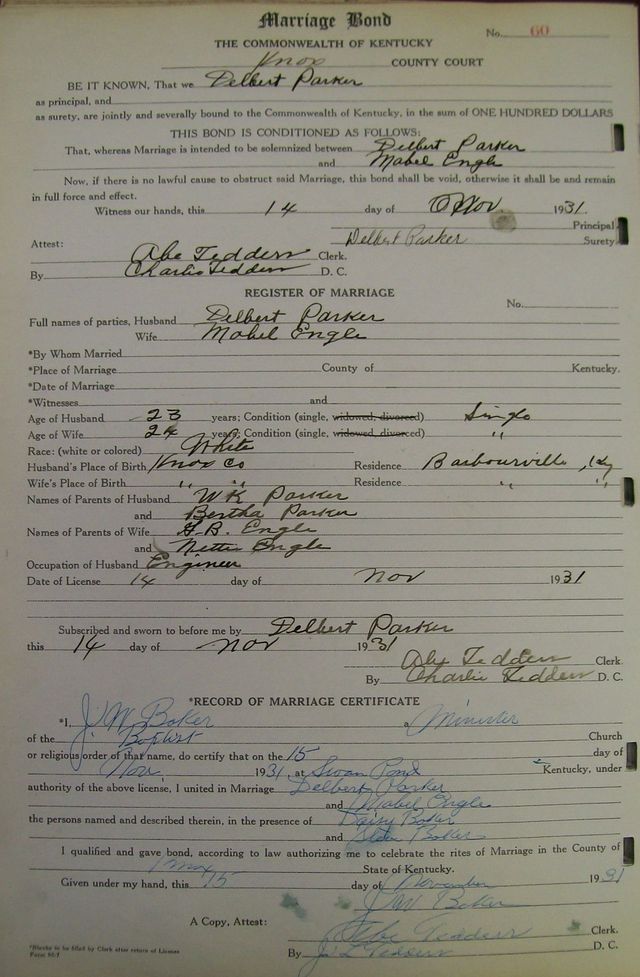 Marriage Bond
No. 60
THE COMMONWEALTH OF KENTUCKY
Knox COUNTY COURT
BE IT KNOWN, That we Delbert Parker
as principal, and
as surety, are jointly and severally bound to the Commonwealth of Kentucky, in the sum of ONE HUNDRED DOLLARS
THIS BOND IS CONDITIONED AS FOLLOWS:
That, whereas Marriage is intended to be solemnized between Delbert Parker
and Mabel Engle
Now, if there is no lawful cause to obstruct said Marriage, this bond shall be void, otherwise it shall be and remain
in full force and effect.
Witness our hands, this 14 day of Nov. 1931.
Principal
Delbert Parker Surety
Attest:
Abe Tedders Clerk.
By Charlie Tedders D. C.
REGISTER OF MARRIAGE
No.
Full names of parties, Husband Delbert Parker
Wife Mabel Engle
*By Whom Married
*Place of Marriage County of Kentucky.
*Date of Marriage
*Witnesses and
Age of Husband 23 years; Condition (single, widowed, divorced) Single
Age of Wife 24 years; Condition (single, widowed, divorced) "
Race: (white or colored) White
Husband's Place of Birth Knox Co Residence Barbourville, Ky
Wife's Place of Birth " " Residence " "
Names of Parents of Husband W K Parker
and Bertha Parker
Names of Parents of Wife G.B. Engle
and Nettie Engle
Occupation of Husband Engineer
Date of License 14 day of Nov 1931
Subscribed and sworn to before me by Delbert Parker
this 14 day of Nov 1931
Abe Tedders Clerk
By Charlie Tedders D. C.
*RECORD OF MARRIAGE CERTIFICATE
*I, J. W. Baker a Minister
of the Baptist Church
or religious order of that name, do certify that on the 15 day of
Nov. 1931 at Swan Pond Kentucky, under
authority of the above license, I united in Marriage Delbert Parker
and Mabel Engle
the persons named and described therein, in the presence of Daisy Baker
and Baker
I qualified and gave bond, according to law authorizing me to celebrate the rites of Marriage in the County of
Knox State of Kentucky.
Given under my hand, this 15 day of November 1931
J W Baker
A Copy, Attest:
Abe Tedders Clerk.
By Tedders D. C.
*Blanks to be filled by Clerk after return of License